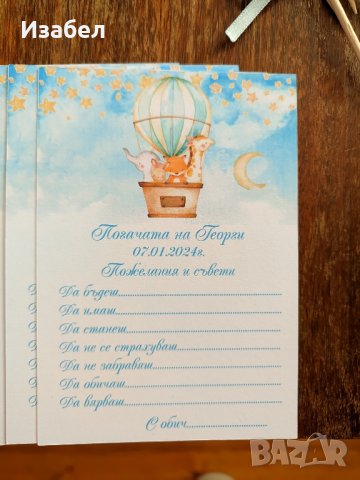 Изабел
Погачата на Георги
07.01.2024г.
Пожелания и съвети
Да бъдеш
Да имаш
Да станеш
Да не се страхуваш
Да не забравяш
Да обичаш
Да вярваш
С обич
BAZAR